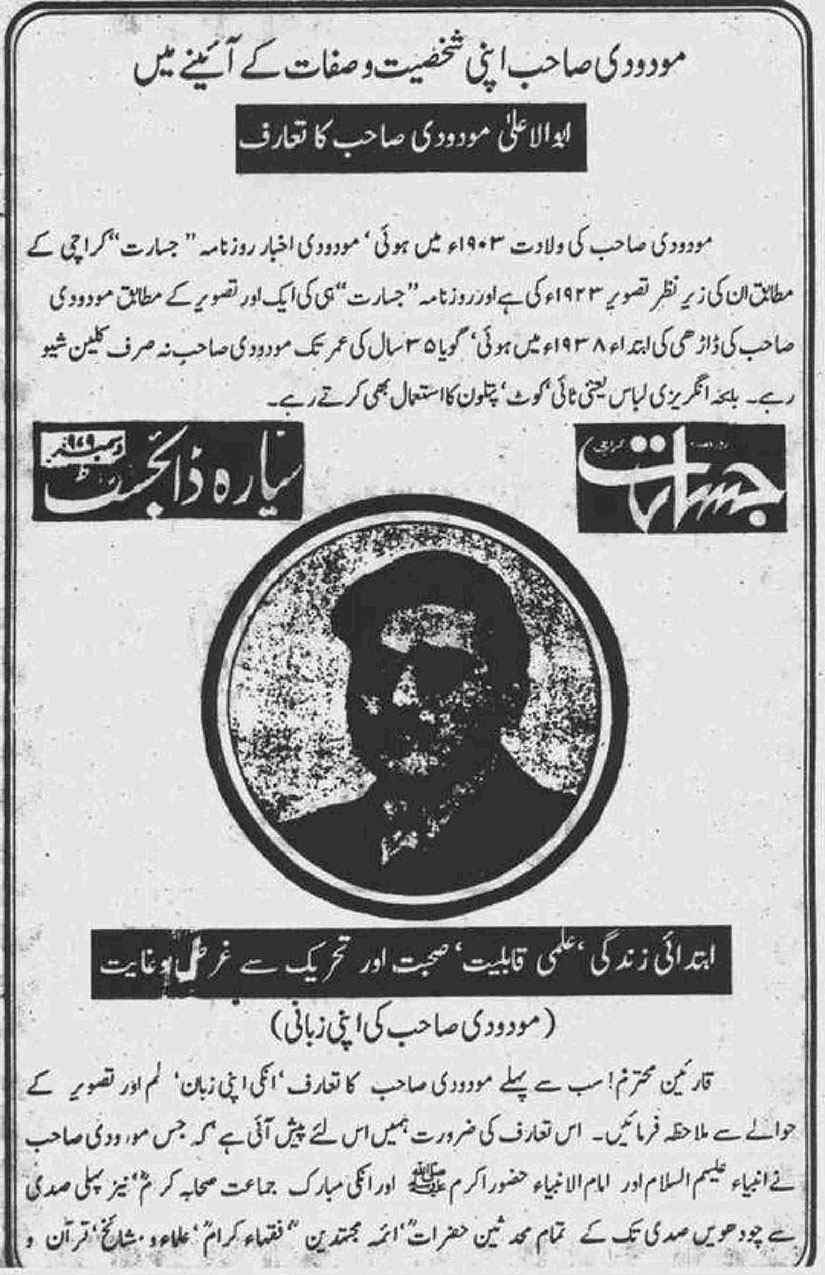 مودودی صاحب اپنی شخصیت و صفات کے آئینے میں
ابوالاعلیٰ مودودی صاحب کا تعارف
مودودی صاحب کی ولادت ۱۹۰۳ء میں ہوئی‘ مودودی اخبار روزنامہ ”جسارت“ کراچی کے
مطابق ان کی زیر نظر تصویر ۱۹۲۳ء کی ہے اور روزنامہ ”جسارت“ ہی کی ایک اور تصویر کے مطابق مودودی
صاحب کی ڈاڑھی کی ابتداء ۱۹۳۸ء میں ہوئی‘ گویا ۳۵ سال کی عمر تک مودودی صاحب نہ صرف کلین شیو
رہے۔ بلکہ انگریزی لباس یعنی ٹائی‘ کوٹ‘ پتلون کا استعمال بھی کرتے رہے۔
جسارت کراچی
سیارہ ڈائجسٹ
ابتدائی زندگی‘ علمی قابلیت‘ صحبت اور تحریک سے غرض و غایت
(مودودی صاحب کی اپنی زبانی)
قارئین محترم! سب سے پہلے مودودی صاحب کا تعارف‘ انکی اپنی زبان‘ قلم اور تصویر کے
حوالے سے ملاحظہ فرمائیں۔ اس تعارف کی ضرورت ہمیں اس لئے پیش آئی ہے کہ جس مودودی صاحب
نے انبیاء علیہم السلام اور امام الانبیاء حضور اکرم ﷺ اور انکی مبارک جماعت صحابہ کرامؓ‘ نیز پہلی صدی
سے چودھویں صدی تک کے تمام محدثین حضراتؒ‘ ائمہ مجتہدینؒ‘ فقہاء کرامؒ‘ علماء و مشائخ‘ قرآن و